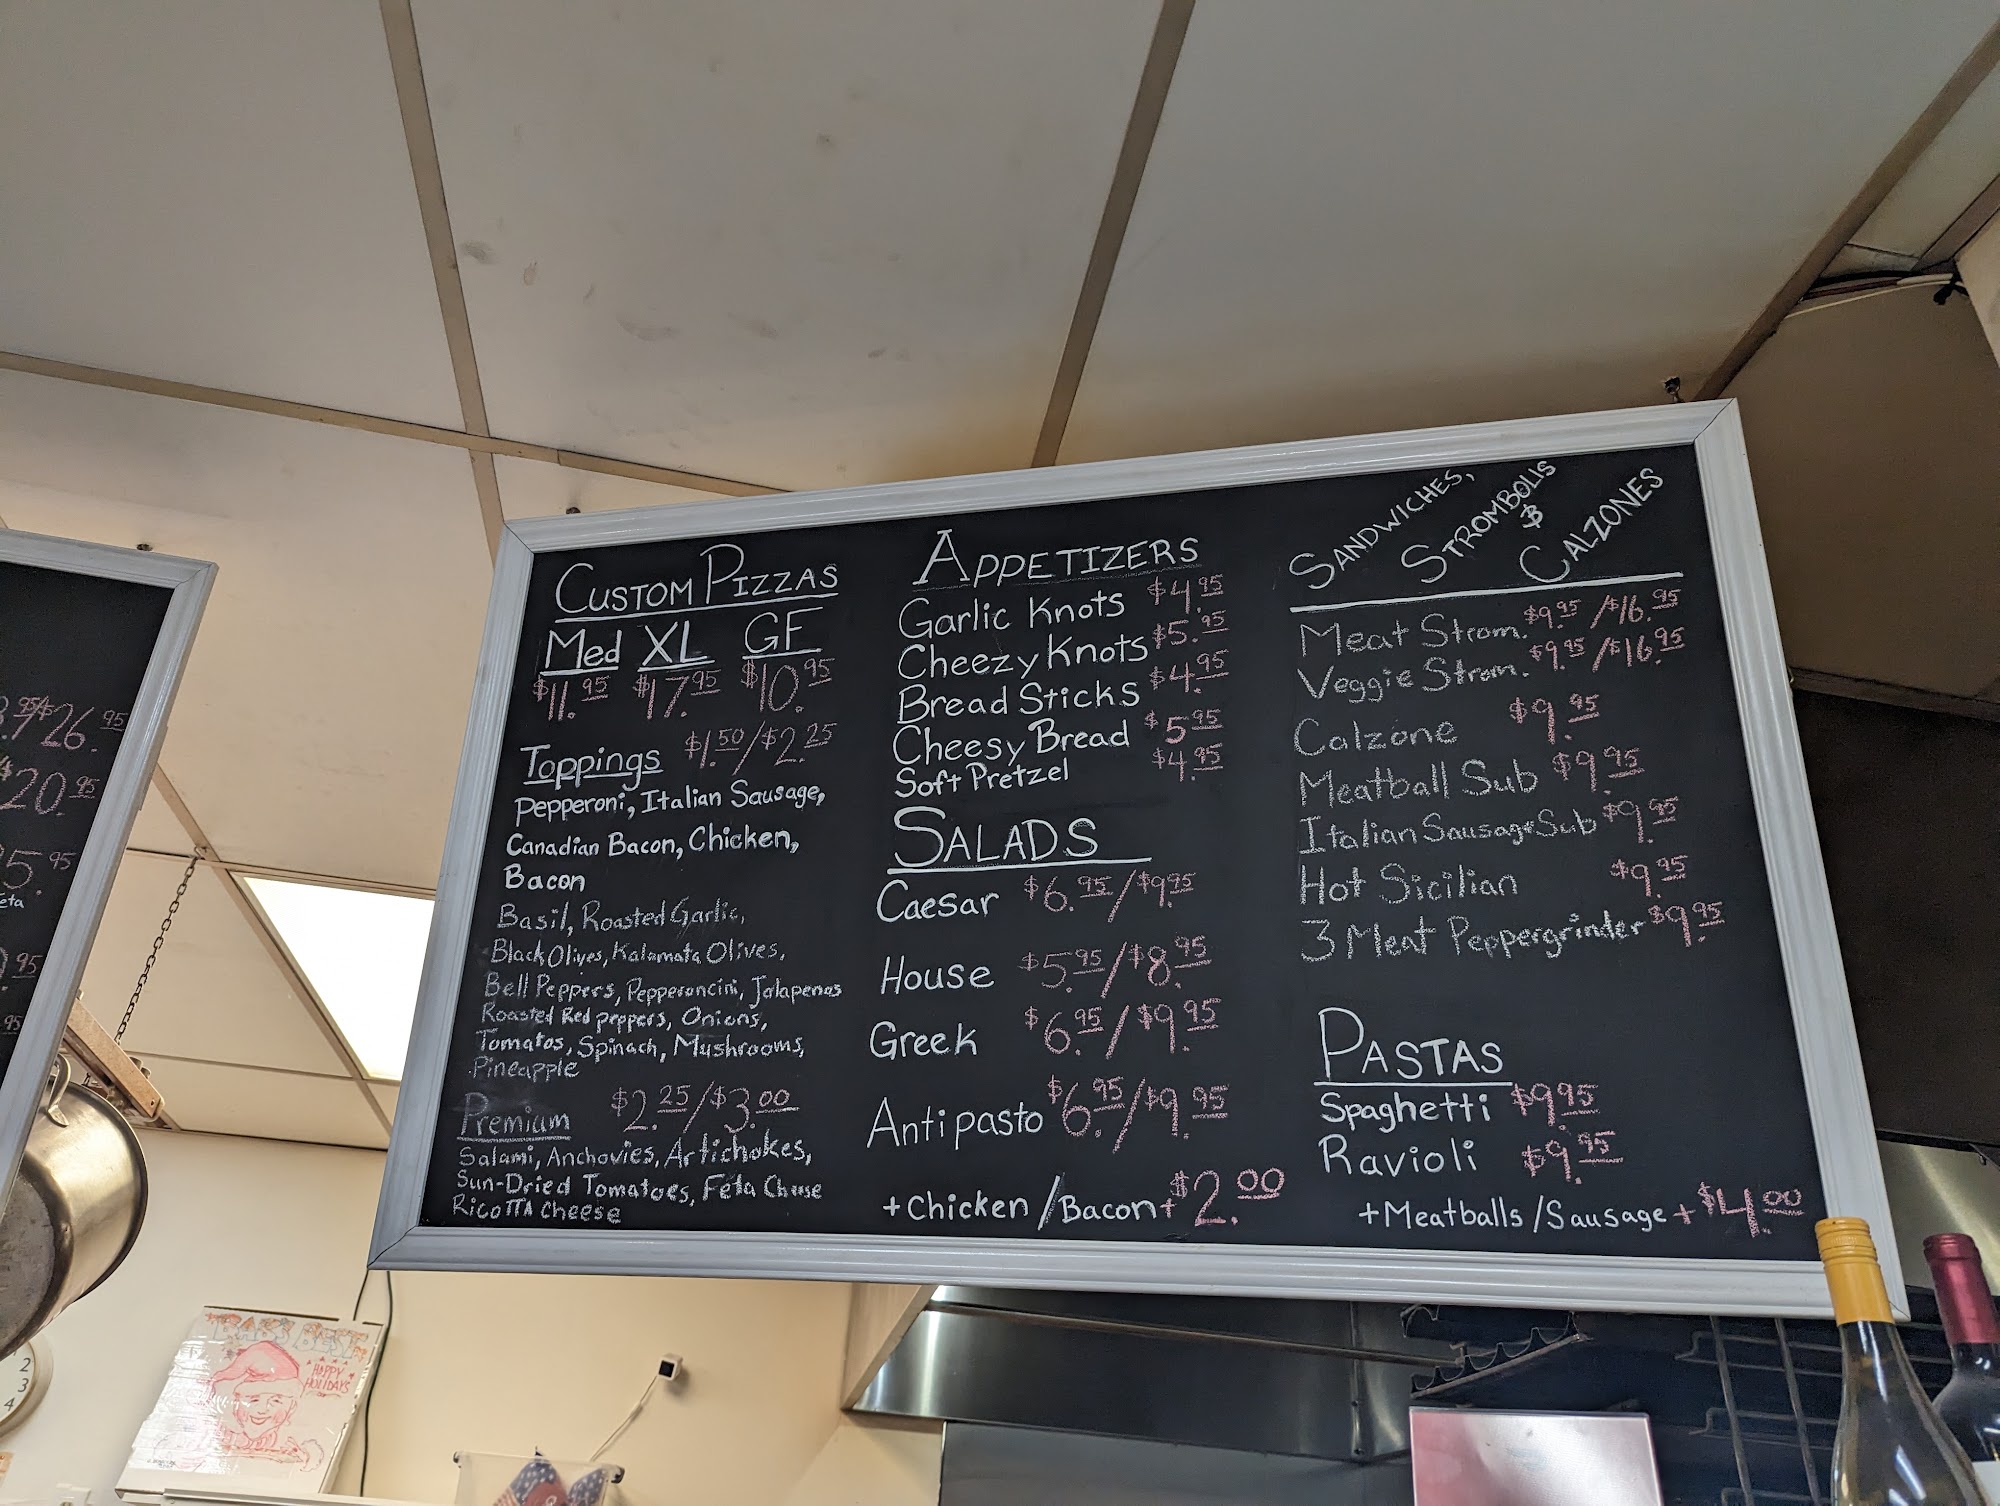 CUSTOM PIZZAS
Med XL GF
$11.95 $17.95 $10.95
Toppings $1.50/$2.25
Pepperoni, Italian Sausage,
Canadian Bacon, Chicken,
Bacon
Basil, Roasted Garlic,
Black Olives, Kalamata Olives,
Bell Peppers, Pepperoncini, Jalapenos
Roasted Red peppers, Onions,
Tomatos, Spinach, Mushrooms,
Pineapple
Premium $2.25/$3.00
Salami, Anchovies, Artichokes,
Sun-Dried Tomatoes, Feta Cheese
Ricotta Cheese
APPETIZERS
Garlic Knots $4.95
Cheezy Knots $5.95
Bread Sticks $4.95
Cheesy Bread $5.95
Soft Pretzel $4.95
SALADS
Caesar $6.95/$9.95
House $5.95/$8.95
Greek $6.95/$9.95
Antipasto $6.95/$9.95
+Chicken/Bacon+ $2.00
SANDWICHES,
STROMBOLIS
&
CALZONES
Meat Strom. $9.95/$16.95
Veggie Strom. $9.95/$16.95
Calzone $9.95
Meatball Sub $9.95
Italian Sausage Sub $9.95
Hot Sicilian $9.95
3 Meat Peppergrinder $9.95
PASTAS
Spaghetti $9.95
Ravioli $9.95
+Meatballs/Sausage + $4.00
$26.95
$20.95
5.95
eta
.95
.95
BEST
HAPPY
HOLIDAYS
2
3
4